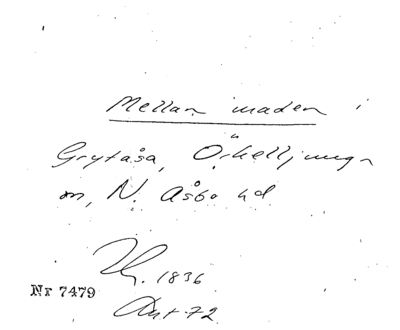 Mellan maden i
Grytåsa, Örkelljunga
sn, N. Åsbo hd
1836
Nr 7479
Akt 72